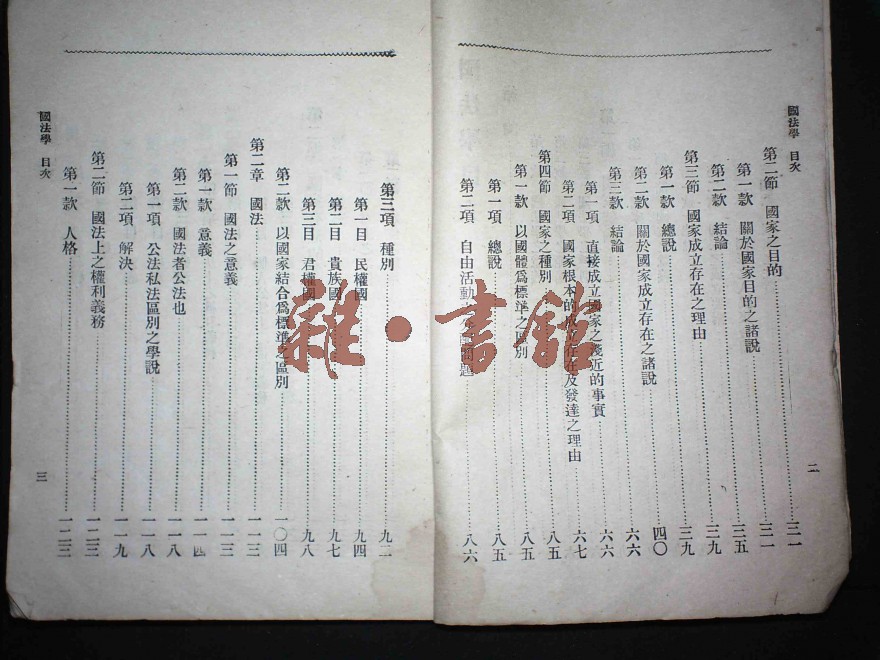 國法學 目次
第二節 國家之目的 三一
第一款 關於國家目的之諸說 三五
第二款 結論 三九
第三節 國家成立存在之理由 三九
第一款 總說 四〇
第二款 關於國家成立存在之諸說 六六
第三款 結論 六六
第一項 直接成立國家之淺近的事實 六七
第二項 國家根本的成立存在及發達之理由
第四節 國家之種別 八五
第一款 以國體爲標準之區別 八五
第一項 總說 八五
第二項 自由活動 八六
二
國法學 目次
第三項 種別 九二
第一目 民權國 九四
第二目 貴族國 九七
第三目 君權國 九八
第二款 以國家結合爲標準之區別 一〇四
第二章 國法 一一三
第一節 國法之意義 一一三
第一款 意義 一一四
第二款 國法者公法也 一一八
第一項 公法私法區別之學說 一一八
第二項 解決 一一九
第二節 國法上之權利義務 一二三
第一款 人格 一二三
三
雜·書館